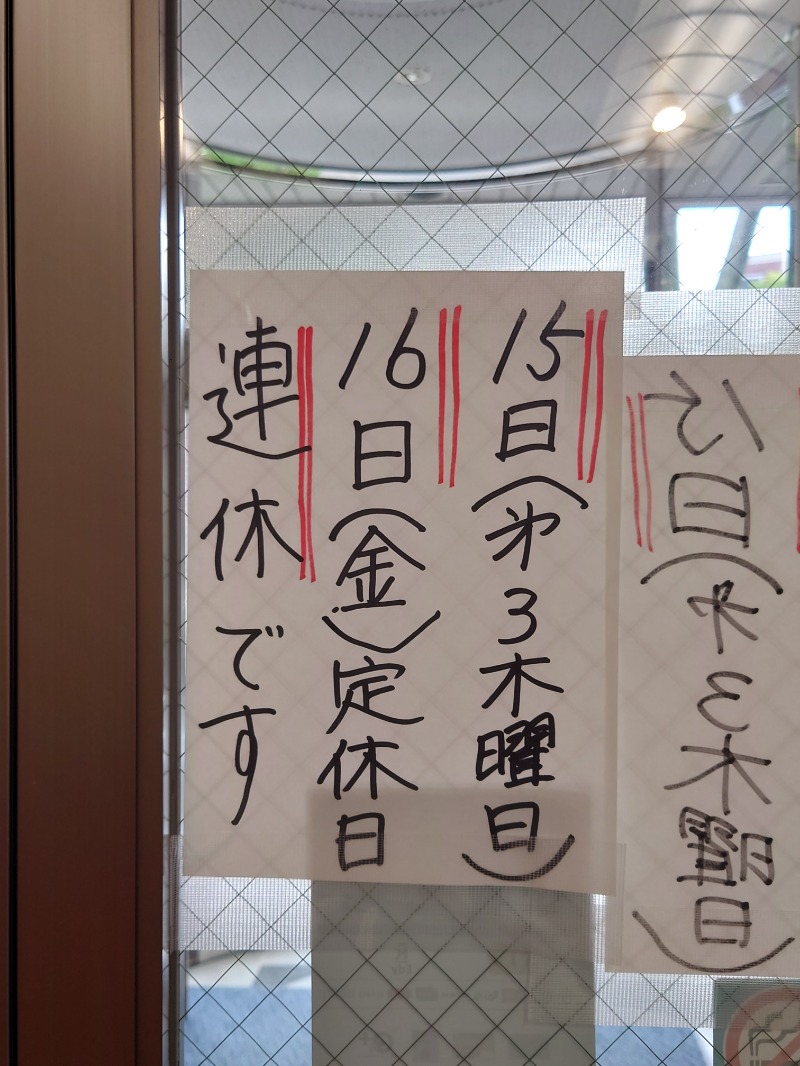 15日(㐧3木曜日)
16日(金)定休日
連休です
15日(㐧3木曜日)